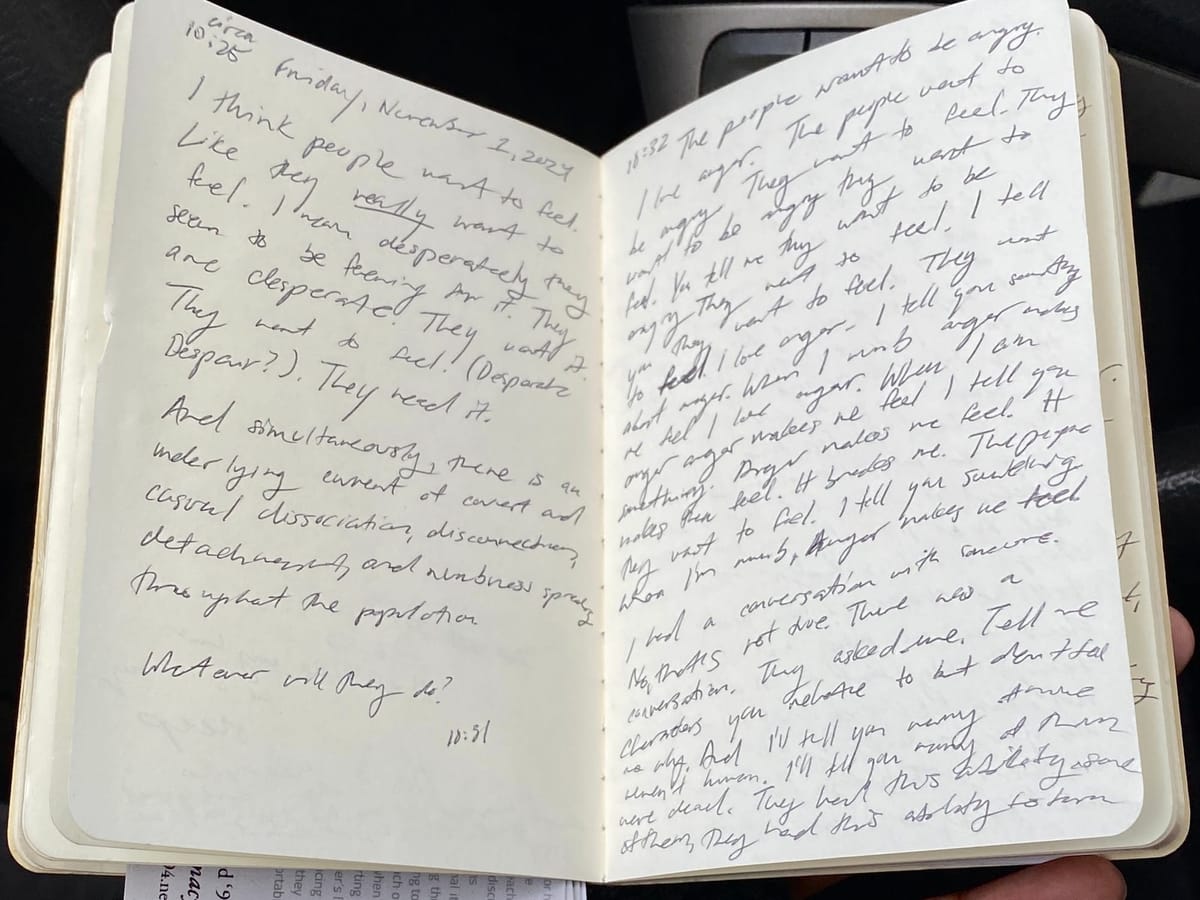 circa
10:25
Friday, November 1, 2024
I think people want to feel.
Like they really want to
feel. I mean desperately they
seem to be feening for it. They
are desperate. They want it.
They want to feel. (Desparate
Despair?). They need it.
And simultaneously, there is an
underlying current of covert and
casual dissociation, disconnection,
detachment, and numbness spreading
throughout the population
Whatever will they do?
10:31
10:32 The people want to be angry.
I love anger. The people want to
be angry. They want to feel. They
want to be angry they want to
feel. You tell me they want to be
angry they want to feel. I tell
you they want to feel. They want
to feel I love anger. I tell you something
about anger. When I numb anger makes
me feel I love anger. When I am
anger anger makes me feel I tell you
something. Anger makes me feel. It
makes them feel. It me. The people
they want to feel. I tell you something
when I'm numb, Anger makes me feel
I had a conversation with someone.
No, that's not true. There was a
conversation. They asked me. Tell me
characters you relate to but don't feel
no why. And I'll tell you many
weren't human. I'll tell you many of them
were dead. They had this ability some
of them, they had this ability to turn
d '9
nac
04.ne